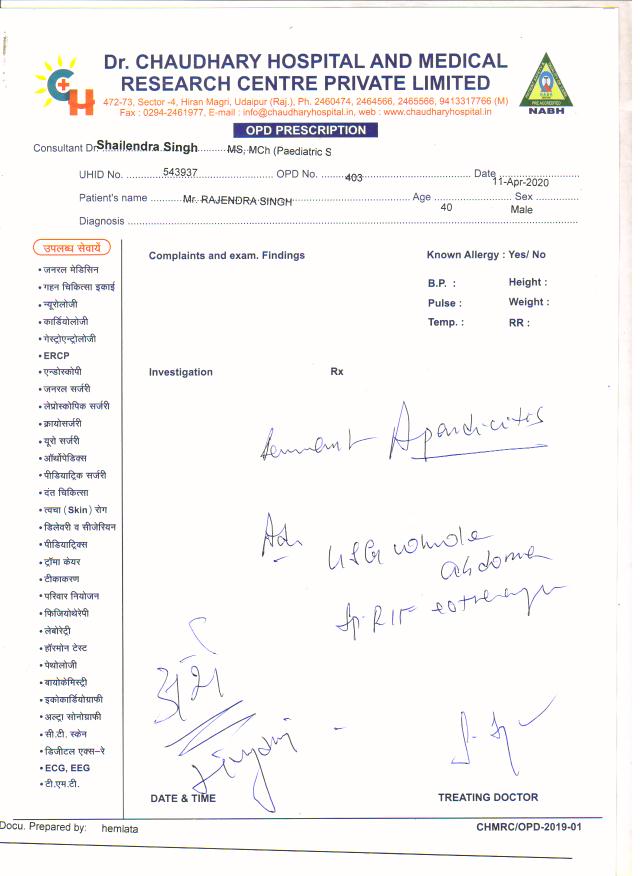 Dr. CHAUDHARY HOSPITAL AND MEDICAL
RESEARCH CENTRE PRIVATE LIMITED
472-73, Sector -4, Hiran Magri, Udaipur (Raj.), Ph. 2460474, 2464566, 2465566, 9413317766 (M)
Fax : 0294-2461977, E-mail : info@chaudharyhospital.in, web : www.chaudharyhospital.in
NABH
OPD PRESCRIPTION
Consultant Dr. Shailendra Singh MS, MCh (Paediatric S
UHID No. 543937 OPD No. 403 Date 11-Apr-2020
Patient's name Mr. RAJENDRA SINGH Age 40 Sex Male
Diagnosis
उपलब्ध सेवायें
• जनरल मेडिसिन
• गहन चिकित्सा इकाई
• न्यूरोलोजी
• कार्डियोलोजी
• गेस्ट्रोएन्ट्रोलोजी
• ERCP
• एन्डोस्कोपी
• जनरल सर्जरी
• लेप्रोस्कोपिक सर्जरी
• क्रायोसर्जरी
• यूरो सर्जरी
• ऑर्थोपेडिक्स
• पीडियाट्रिक सर्जरी
• दंत चिकित्सा
• त्वचा (Skin) रोग
• डिलेवरी व सीजेरियन
• पीडियाट्रिक्स
• ट्रॉमा केयर
• टीकाकरण
• परिवार नियोजन
• फिजियोथेरेपी
• लेबोरेट्री
• हॉरमोन टेस्ट
• पेथोलोजी
• बायोकेमिस्ट्री
• इकोकार्डियोग्राफी
• अल्ट्रा सोनोग्राफी
• सी.टी. स्केन
• डिजीटल एक्स-रे
• ECG, EEG
• टी.एम.टी.
Complaints and exam. Findings
Known Allergy : Yes/ No
B.P. : Height :
Pulse : Weight :
Temp. : RR :
Investigation Rx
Apendicites
Adv USG whole
abdomen
RIF
DATE & TIME TREATING DOCTOR
Docu. Prepared by: hemlata CHMRC/OPD-2019-01